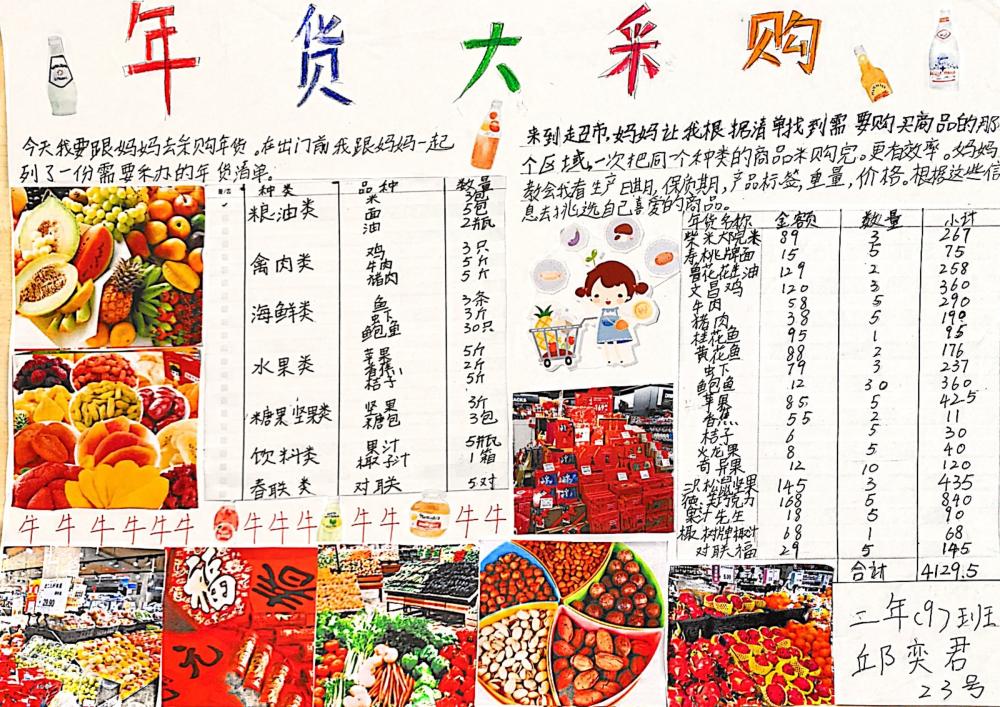 年货大采购
今天我要跟妈妈去采购年货。在出门前我跟妈妈一起
列了一份需要采办的年货清单。
种类 品种 数量
粮油类 米 3包
面 5包
油 2瓶
禽肉类 鸡 3只
牛肉 5斤
猪肉 5斤
海鲜类 鱼 3条
虾 3斤
鲍鱼 30只
水果类 苹果 5斤
香蕉 2斤
桔子 5斤
糖果坚果类 坚果 3斤
糖包 3包
饮料类 果汁 5瓶
椰子汁 1箱
春联类 对联 5对
牛牛牛牛牛牛牛牛牛牛牛牛牛
来到超市,妈妈让我根据清单找到需要购买商品的那
个区域,一次把同一个种类的商品采购完。更有效率。妈妈
教会我看生产日期,保质期,产品标签,重量,价格。根据这些信
息去挑选自己喜爱的商品。
年货名称 金额 数量 小计
柴米大院米 89 3 267
寿桃牌面 15 5 75
鲁花花生油 129 2 258
文昌鸡 120 3 360
牛肉 58 5 290
猪肉 38 5 190
桂花鱼 95 1 95
黄花鱼 88 2 176
虾 79 3 237
鲍鱼 12 30 360
苹果 85 5 425
香蕉 55 2 11
桔子 6 5 30
火龙果 8 5 40
奇异果 12 10 120
三只松鼠坚果 145 3 435
德芙巧克力 168 5 840
果汁先生 18 5 90
椰树牌椰汁 68 1 68
对联福 29 5 145
合计 4129.5
福
二年(9)班
邱奕君
23号